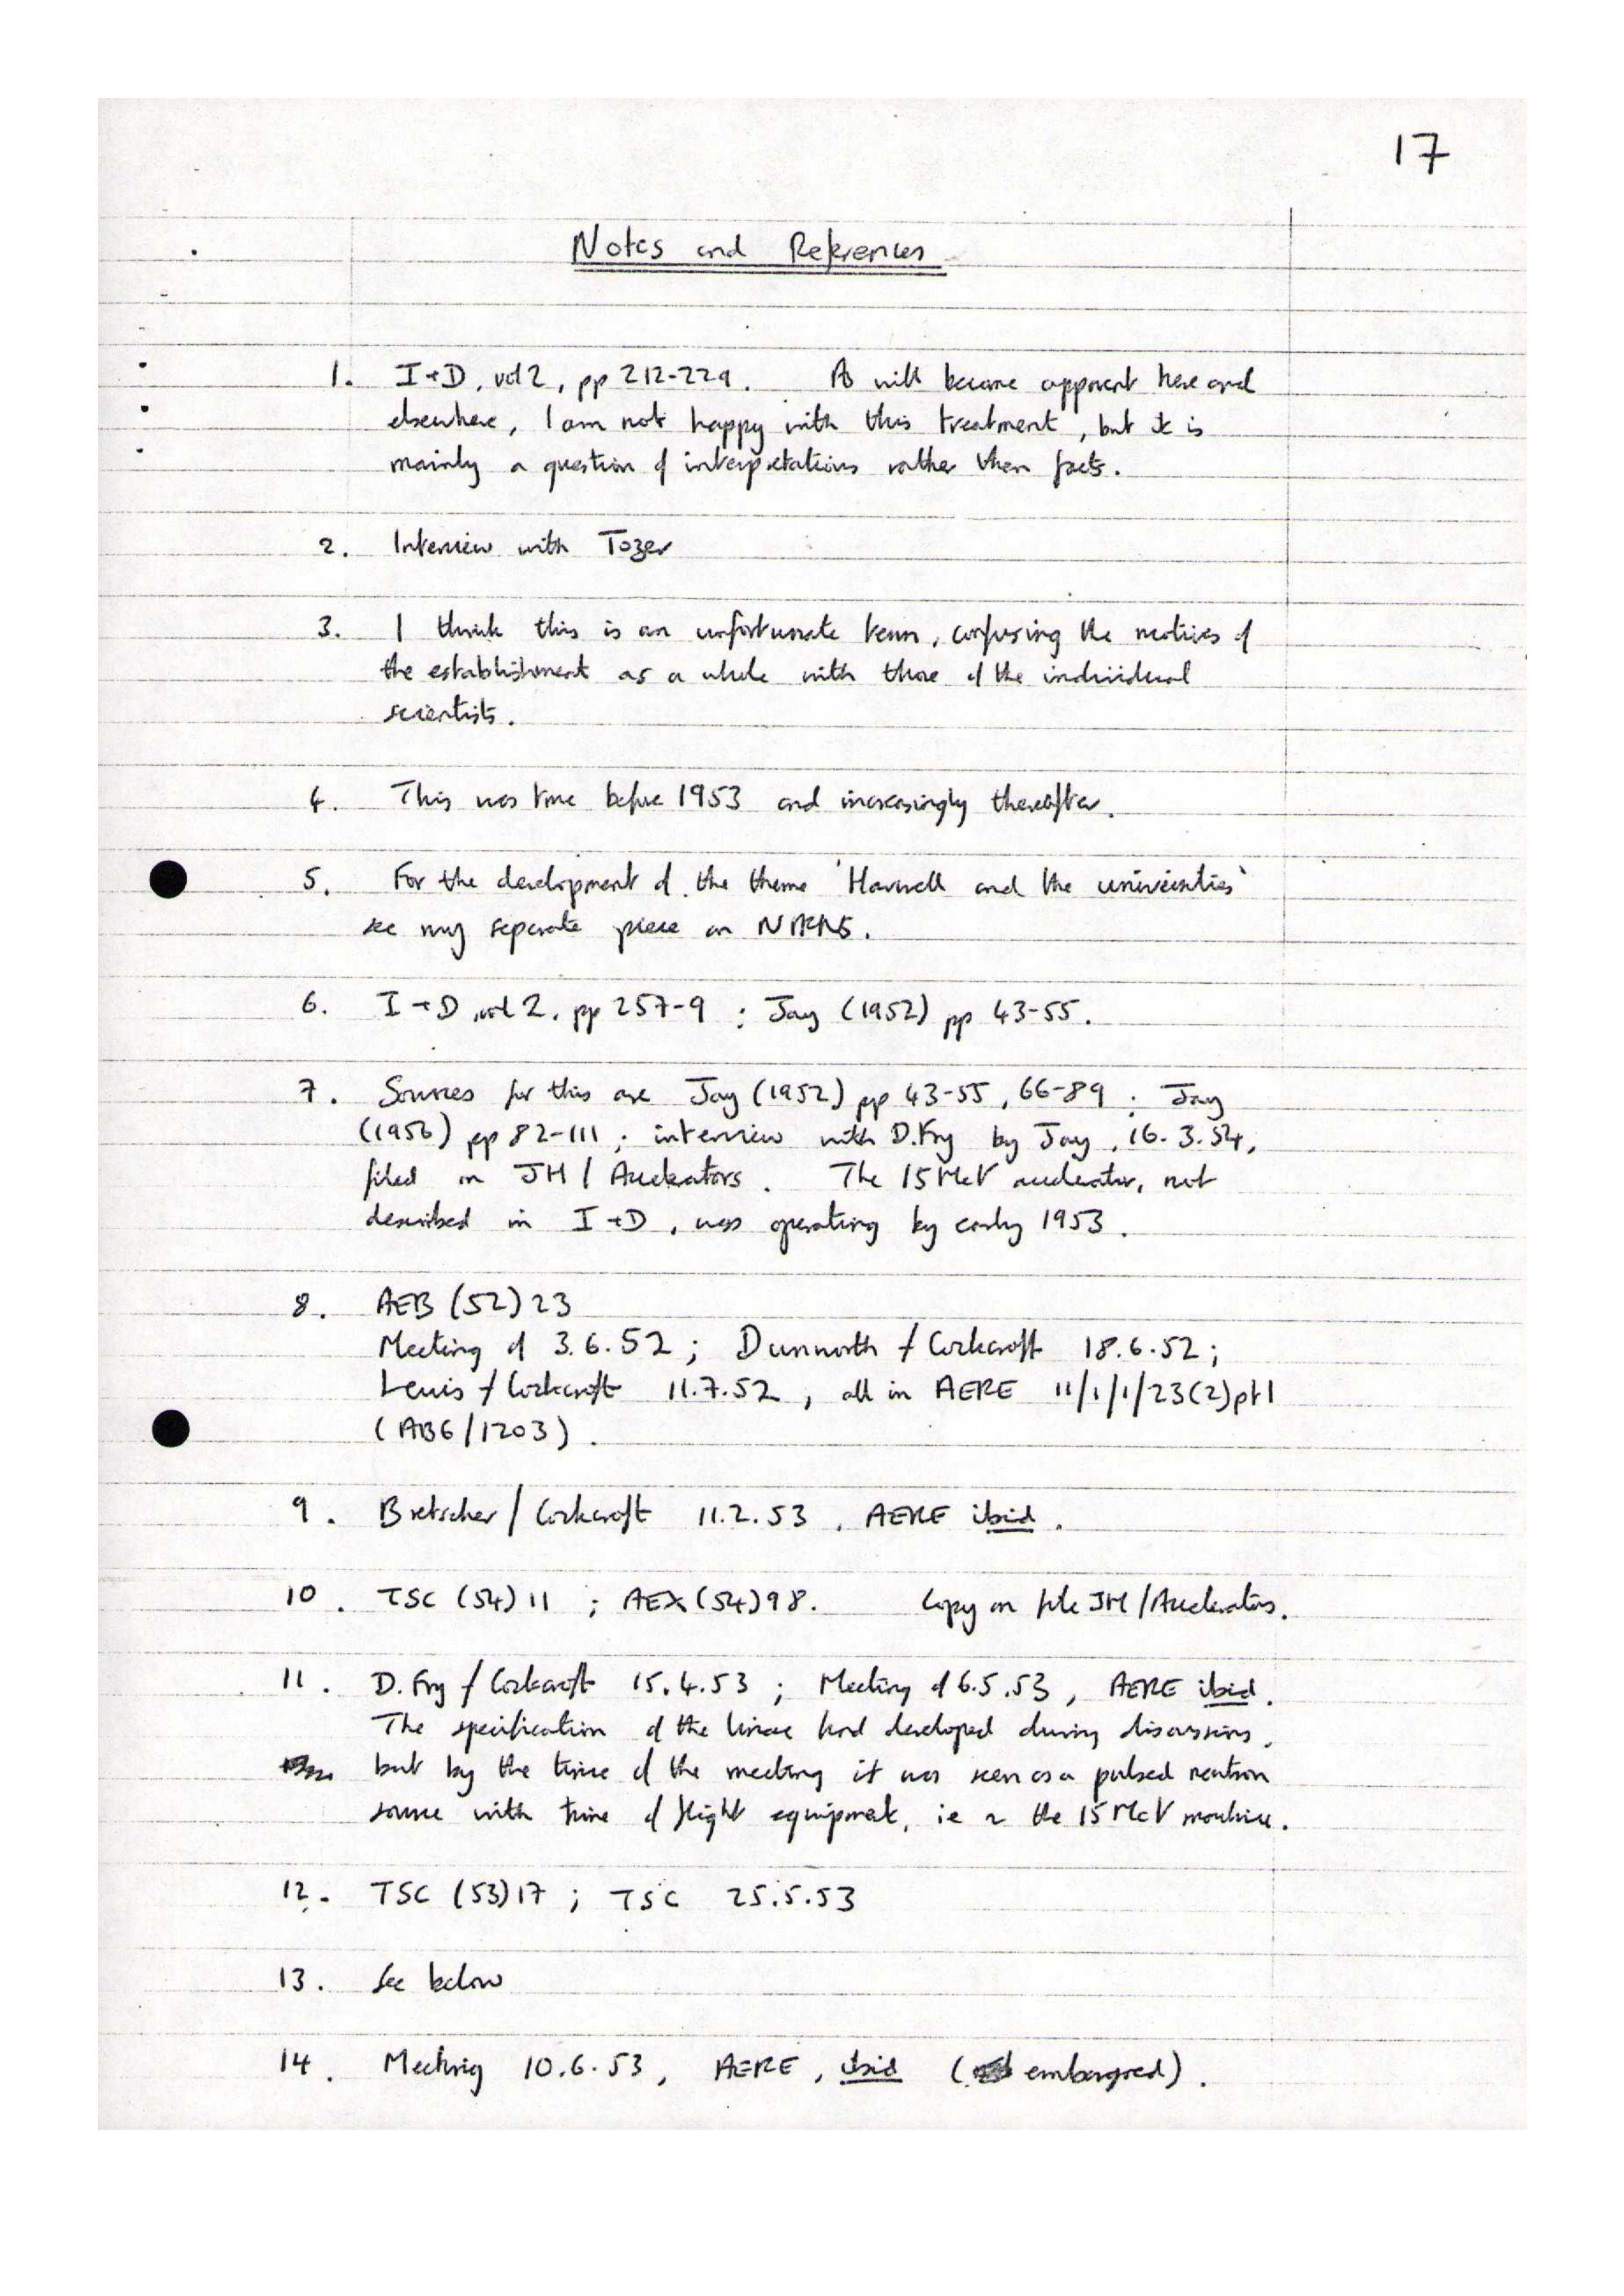 17
Notes and References
1. I+D, vol 2, pp 212-229. As will become apparent here and
elsewhere, I am not happy with this treatment, but it is
mainly a question of interpretations rather than facts.
2. Interview with Tozer
3. I think this is an unfortunate term, confusing the motives of
the establishment as a whole with those of the individual
scientists.
4. This was true before 1953 and increasingly thereafter.
5. For the development of the theme 'Harwell and the universities'
see my separate piece on NIRNS.
6. I+D, vol 2, pp 257-9 ; Jay (1952) pp 43-55.
7. Sources for this are Jay (1952) pp 43-55, 66-89 ; Jay
(1956) pp 82-111 ; interview with D.Fry by Jay, 16.3.54,
filed in JH / Accelerators. The 15 MeV accelerator, not
described in I+D, was operating by early 1953.
8. AEB (52) 23
Meeting of 3.6.52 ; Dunworth / Cockcroft 18.6.52 ;
Lewis / Cockcroft 11.7.52, all in AERE 11/1/1/23(2) pt 1
(AB6/1203).
9. Bretscher / Cockcroft 11.2.53, AERE ibid.
10. TSC (54) 11 ; AEX (54) 98. Copy on file JH / Accelerators.
11. D. Fry / Cockcroft 15.4.53 ; Meeting of 6.5.53, AERE ibid.
The specification of the linac had developed during discussions,
but by the time of the meeting it was seen as a pulsed neutron
source with time of flight equipment, ie ~ the 15 MeV machine.
12. TSC (53) 17 ; TSC 25.5.53
13. See below
14. Meeting 10.6.53, AERE, ibid ( embargoed).